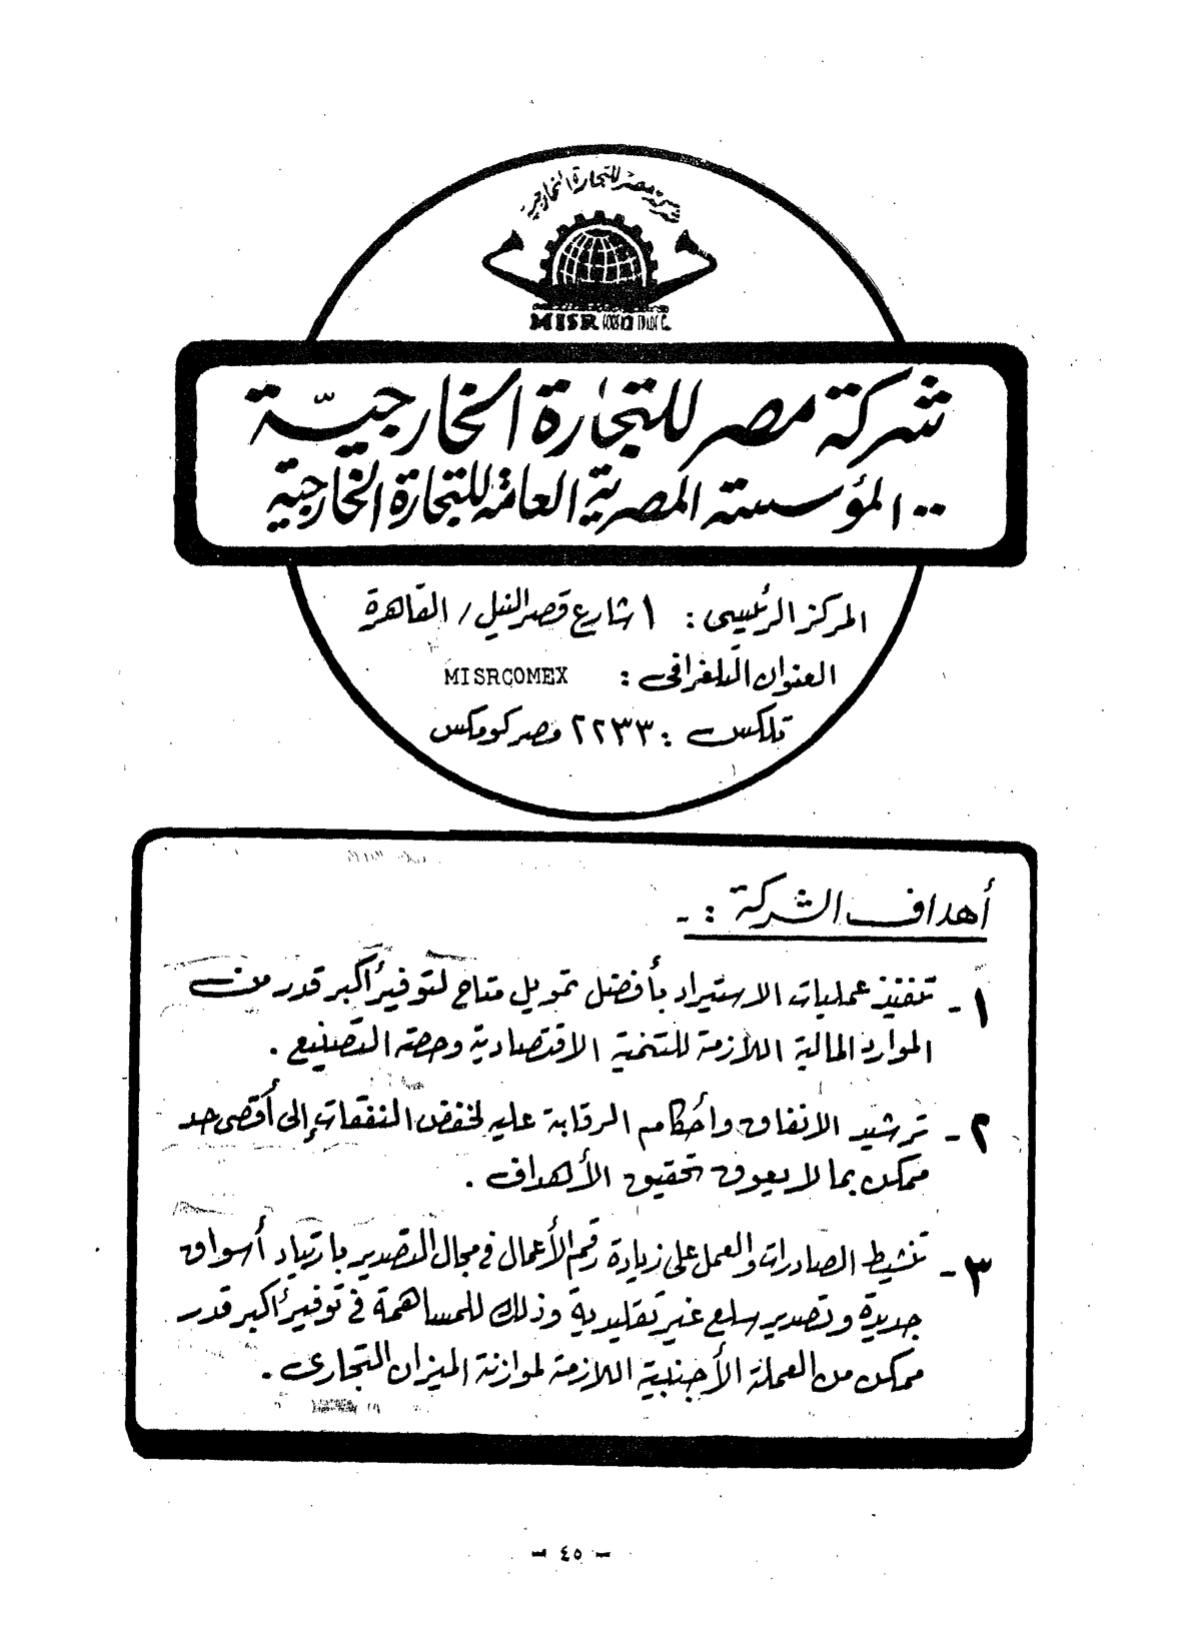 شركة مصر للتجارة الخارجية
MISR
شركة مصر للتجارة الخارجيّة
.. المؤسسة المصرية العامة للتجارة الخارجية
المركز الرئيسى : ١ شارع قصر النيل / القاهرة
العنوان التلغرافى : MISRCOMEX
تلكس : ٢٢٣٣ مصر كومكس
أهداف الشركة : -
١ - تنفيذ عمليات الاستيراد بأفضل تمويل متاح لتوفير أكبر قدر من
الموارد المالية اللازمة للتنمية الاقتصادية وحصة التصنيع .
٢ - ترشيد الانفاق وأحكام الرقابة عليه لخفض النفقات إلى أقصى حد
ممكن بما لا يعوق تحقيق الأهداف .
٣ - تنشيط الصادرات والعمل على زيادة رقم الأعمال فى مجال التصدير بارتياد أسواق
جديدة وتصدير سلع غير تقليدية وذلك للمساهمة فى توفير أكبر قدر
ممكن من العملة الأجنبية اللازمة لموازنة الميزان التجارى .
- ٤٥ -